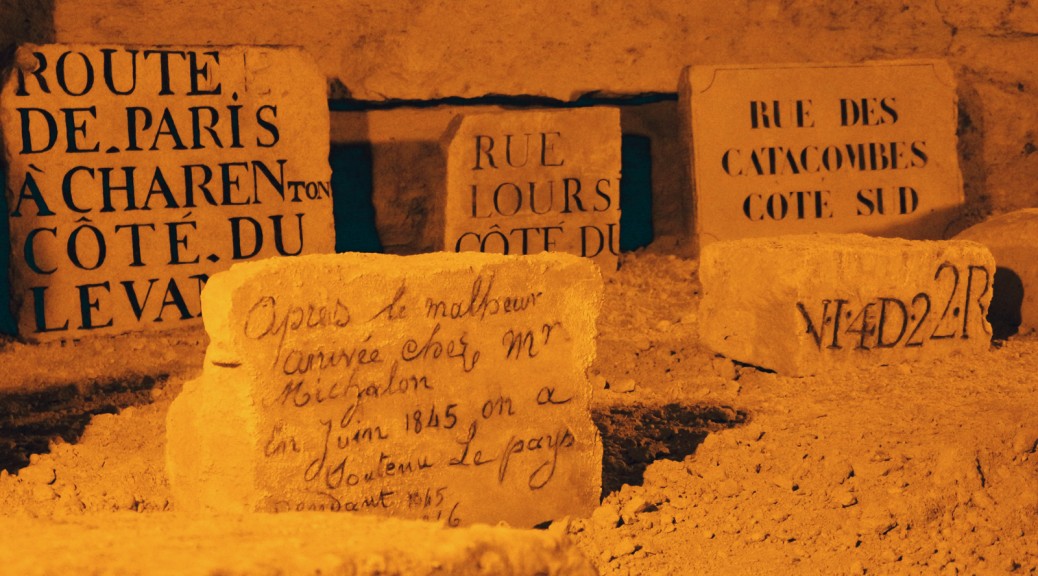 ROUTE.
DE.PARIS
À CHARENTON
CÔTÉ.DU
LEVAN
RUE
LOURS
CÔTÉ DU
RUE DES
CATACOMBES
COTE SUD
Apres le malheur
arrivée chez Mr
Michalon
En Juin 1845 on a
Soutenu Le pays
Pendant
N·1·4·D·2 2·R